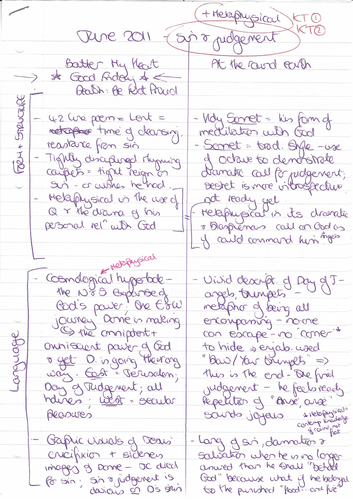 + Metaphysical
KT ①
KT ②
June 2011 - sin & judgement
Batter My Heart
* Good Friday *
Death: Be Not Proud
At the round earth
FORM + STRUCTURE
- 42 line poem = Lent =
time of cleansing,
resistance from sin
- Tightly disciplined rhyming
couplets = tight reign on
sin - or wishes he had.
- Metaphysical in the use of
Q & the drama of his
personal rel" with God
- Holy Sonnet = his form of
meditation with God
- Sonnet = trad. Style - use
of octave to demonstrate
dramatic call for judgement;
sestet is more introspective
not ready yet
- Metaphysical in its dramatic
& Blasphemous call on God as
if could command him
angels
Language
Metaphysical
- Cosmological hyperbole -
the N & S expanse of
God's power, the E & W
journey Donne is making
the omnipotent &
omniscient power of God
& yet D. is going the wrong
way. East = Jerusalem,
Day of Judgement; all
holiness; West = secular
pleasures
- Graphic visuals of Jesus'
crucifixion +
imagery of Donne - JC died
for sin; sin & judgement is
- Vivid descript of Day of J -
angels, trumpets -
metaphor of being all
encompassing - no-one
can escape - no 'corner'
to hide.
"Blow/Your trumpets" =>
this is the end - the final
judgement - he feels ready
Repetition of "Arise, arise"
sounds joyous
- Lang of sin, damnation &
salvation when he is no longer
than he shall "behold
God" because what if he belonged
to the punished